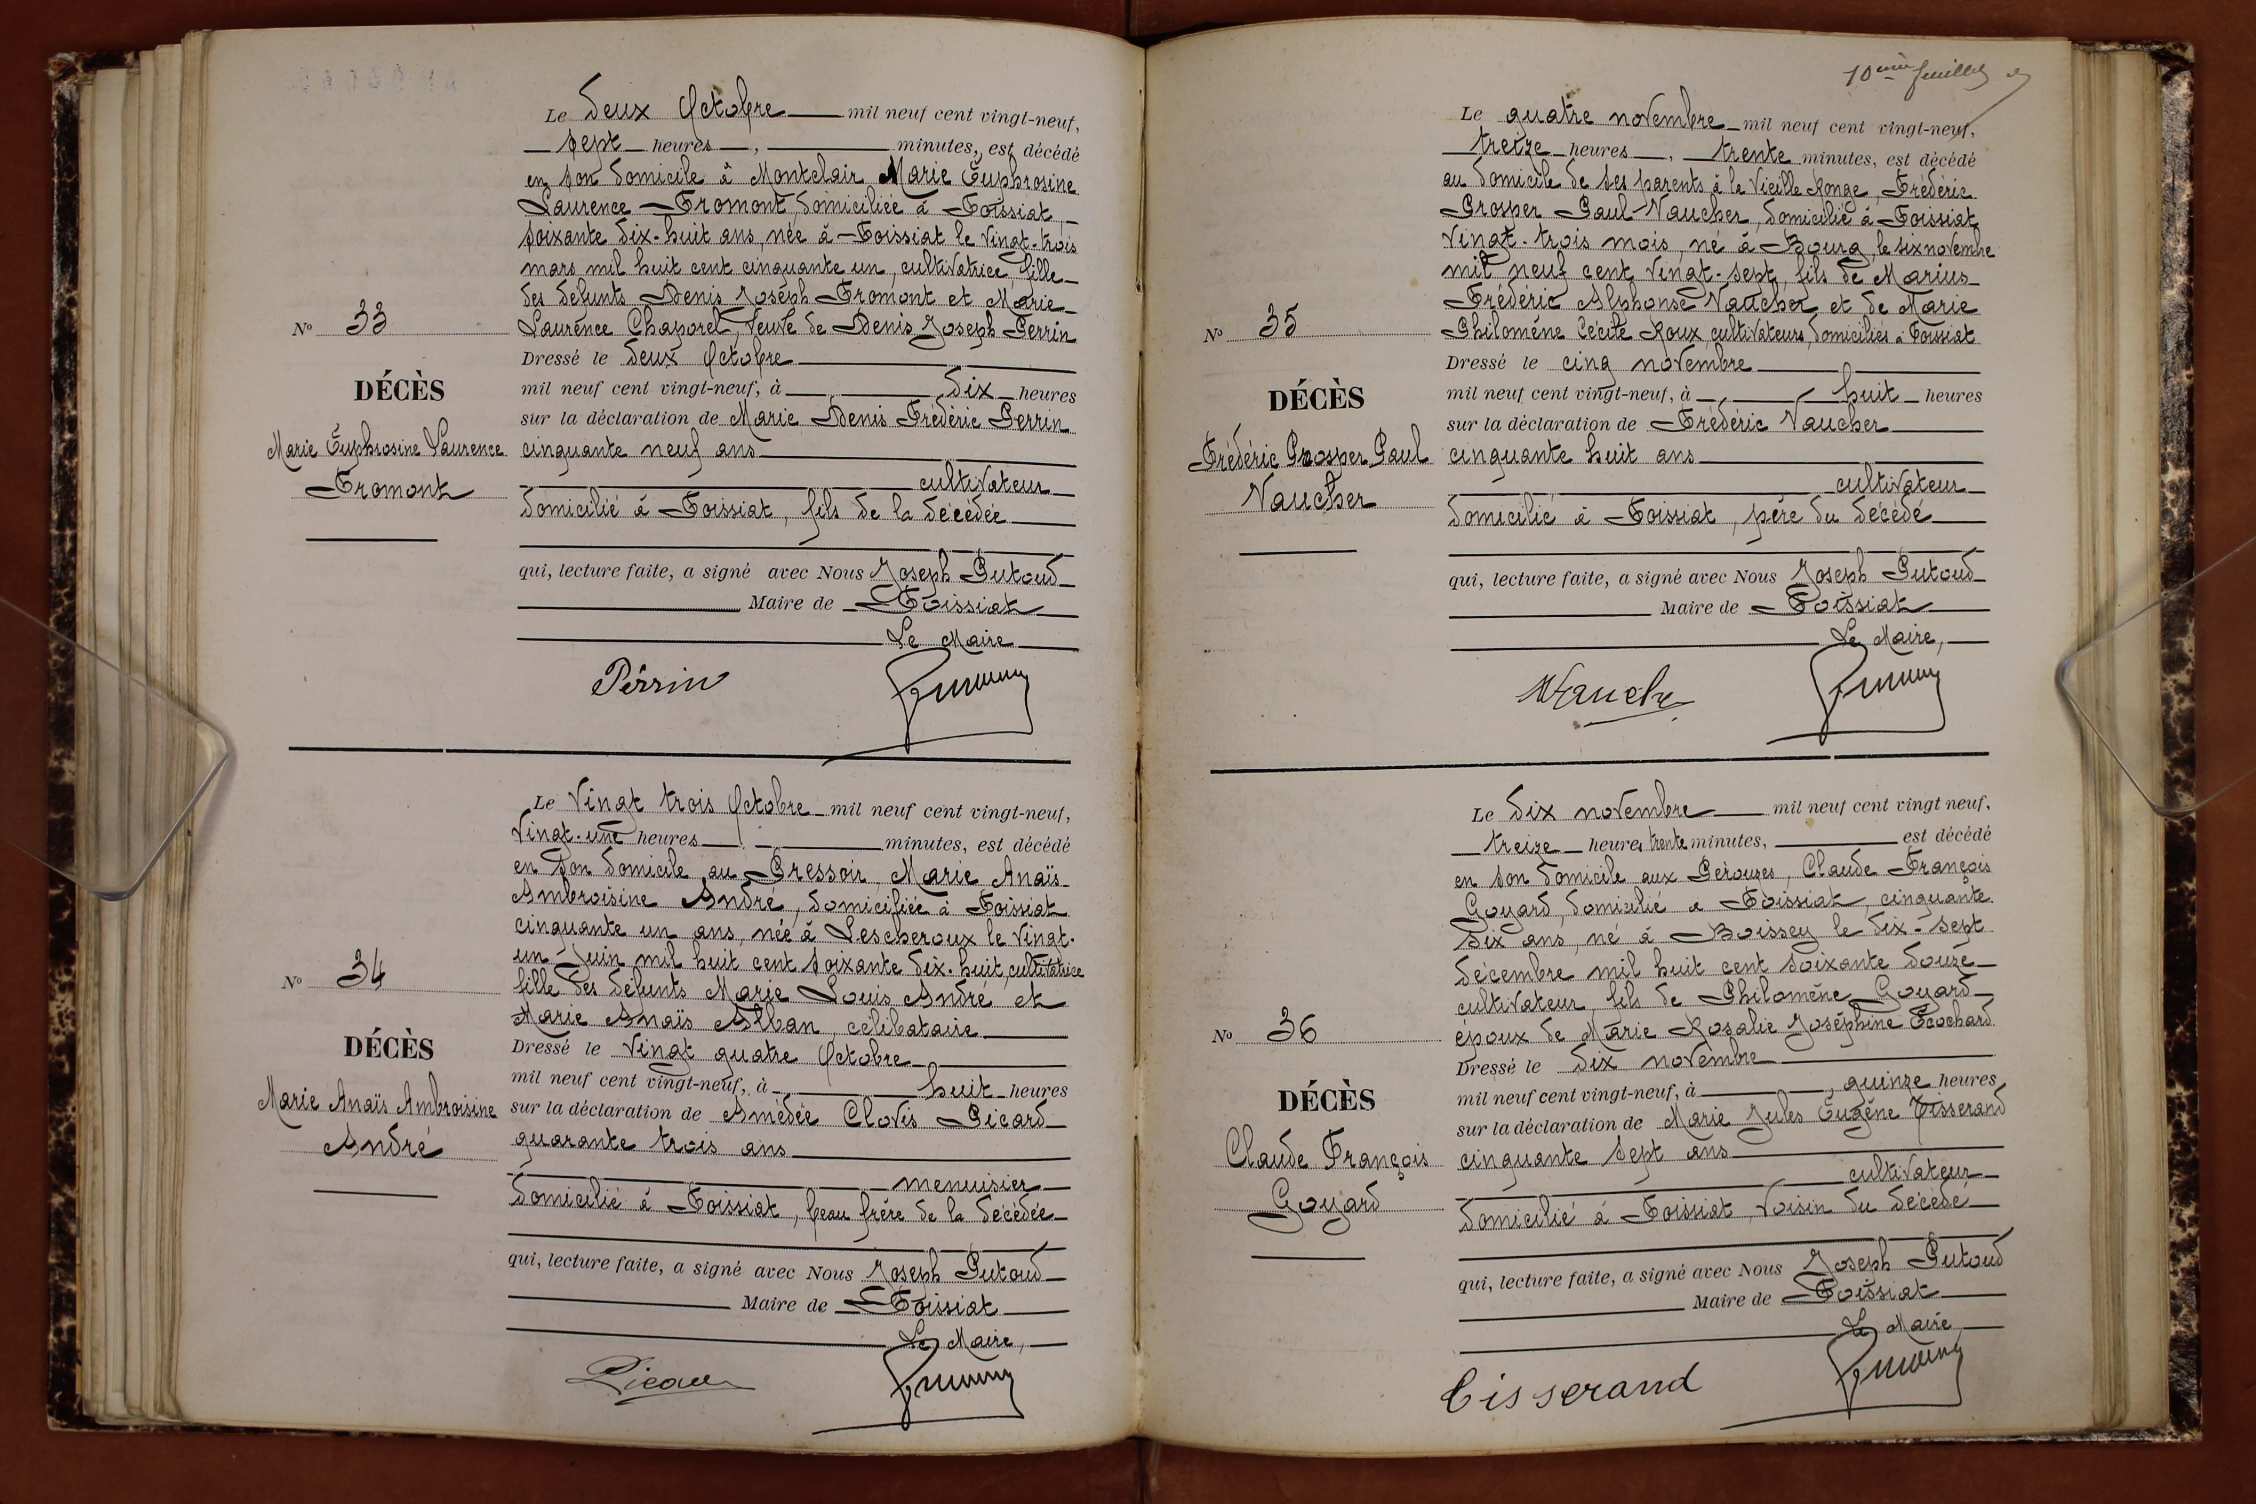 Le deux Octobre mil neuf cent vingt-neuf,
sept heures, minutes, est décédé
en son domicile à Montclair Marie Euphrosine
Laurence Fromont, domiciliée à Foissiat,
soixante dix-huit ans, née à Foissiat le vingt-trois
mars mil huit cent cinquante un, cultivatrice, fille
des défunts Denis Joseph Fromont et Marie
Laurence Chaporel, veuve de Denis Joseph Perrin
Dressé le deux Octobre
mil neuf cent vingt-neuf, à dix heures
sur la déclaration de Marie Denis Frédéric Perrin
cinquante neuf ans
cultivateur
domicilié à Foissiat, fils de la décédée
qui, lecture faite, a signé avec Nous Joseph Putoud
Maire de Foissiat
Le Maire
Perrin
No 33
DÉCÈS
Marie Euphrosine Laurence
Fromont
Le vingt trois Octobre mil neuf cent vingt-neuf,
vingt-une heures, minutes, est décédé
en son domicile au Pressoir, Marie Anaïs
Ambroisine André, domiciliée à Foissiat
cinquante un ans, née à Lescheroux le vingt-
un Juin mil huit cent soixante dix-huit, cultivatrice
fille des défunts Marie Louis André et
Marie Anaïs Alban, célibataire
Dressé le vingt quatre Octobre
mil neuf cent vingt-neuf, à huit heures
sur la déclaration de Amédée Clovis Picard
quarante trois ans
menuisier
domicilié à Foissiat, beau frère de la décédée
qui, lecture faite, a signé avec Nous Joseph Putoud
Maire de Foissiat
Le Maire,
Picard
No 34
DÉCÈS
Marie Anaïs Ambroisine
André
10ème feuillet
Le quatre novembre mil neuf cent vingt-neuf,
treize heures, trente minutes, est décédé
au domicile de ses parents à la Vieille Ronge, Frédéric
Prosper Paul Vaucher, domicilié à Foissiat
vingt-trois mois, né à Bourg, le six novembre
mil neuf cent vingt-sept, fils de Marius
Frédéric Alphonse Vaucher et de Marie
Philomène Cécile Roux, cultivateurs, domiciliés à Foissiat
Dressé le cinq novembre
mil neuf cent vingt-neuf, à huit heures
sur la déclaration de Frédéric Vaucher
cinquante huit ans
cultivateur
domicilié à Foissiat, père du décédé
qui, lecture faite, a signé avec Nous Joseph Putoud
Maire de Foissiat
Le Maire,
No 35
DÉCÈS
Frédéric Prosper Paul
Vaucher
Le dix novembre mil neuf cent vingt neuf,
treize heures trente minutes, est décédé
en son domicile aux Pérouzes, Claude François
Goyard, domicilié à Foissiat, cinquante
six ans, né à Boissey le dix-sept
décembre mil huit cent soixante douze
cultivateur, fils de Philomène Goyard
époux de Marie Rosalie Joséphine Ecochard
Dressé le dix novembre
mil neuf cent vingt-neuf, à quinze heures
sur la déclaration de Marie Jules Eugène Tisserand
cinquante sept ans
cultivateur
domicilié à Foissiat, voisin du décédé
qui, lecture faite, a signé avec Nous Joseph Putoud
Maire de Foissiat
Le Maire
Tisserand
No 36
DÉCÈS
Claude François
Goyard